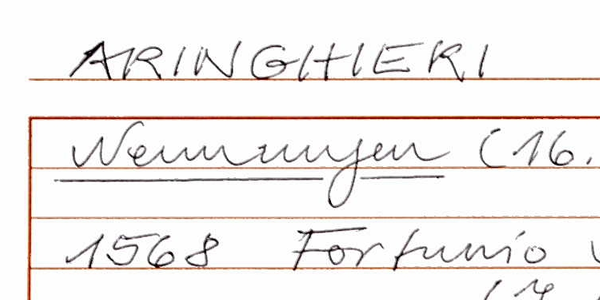 ARINGHIERI
Nennungen (16.
1568 Fortunio v
(17